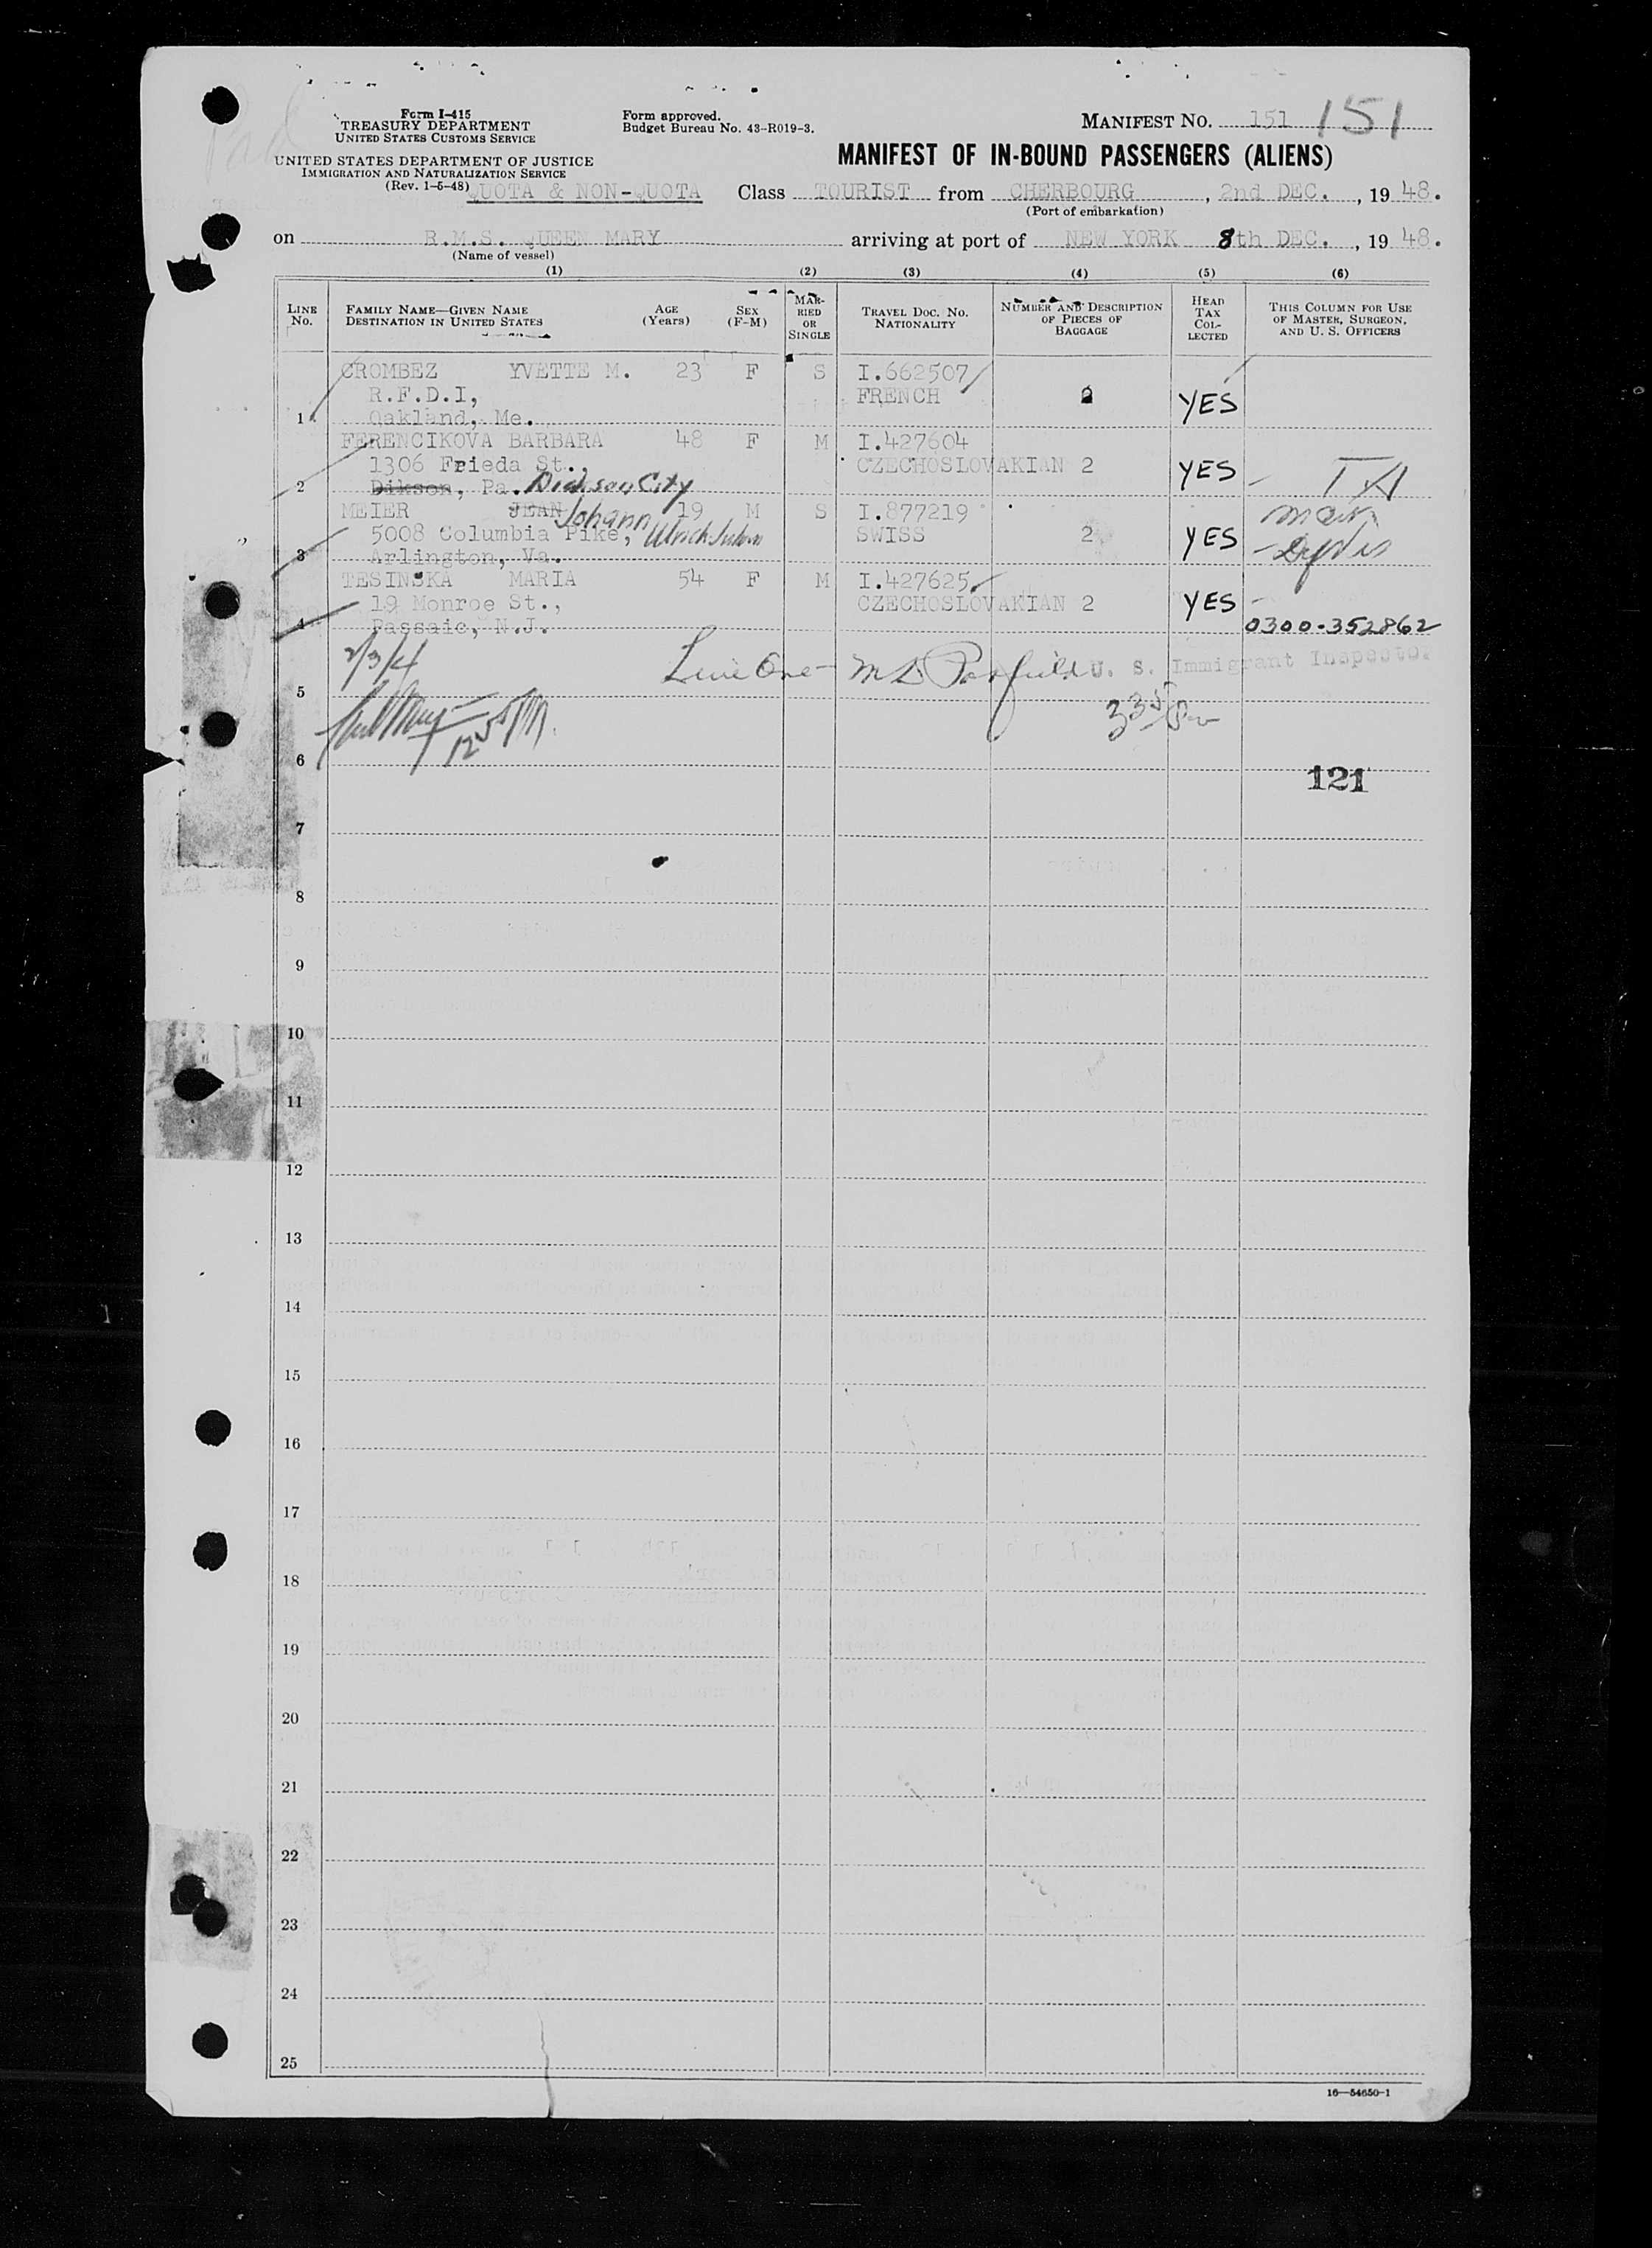 Form I-415
TREASURY DEPARTMENT
UNITED STATES CUSTOMS SERVICE
UNITED STATES DEPARTMENT OF JUSTICE
IMMIGRATION AND NATURALIZATION SERVICE
(Rev. 1-5-48)
Form approved.
Budget Bureau No. 43-R019-3.
MANIFEST NO. 151 151
MANIFEST OF IN-BOUND PASSENGERS (ALIENS)
QUOTA & NON-QUOTA Class TOURIST from CHERBOURG, 2nd DEC., 1948.
(Port of embarkation)
on R.M.S. QUEEN MARY arriving at port of NEW YORK 8th DEC., 1948.
(Name of vessel)
(1) (2) (3) (4) (5) (6)
LINE No. FAMILY NAME—GIVEN NAME DESTINATION IN UNITED STATES AGE (Years) SEX (F-M) MARRIED OR SINGLE TRAVEL DOC. NO. NATIONALITY NUMBER AND DESCRIPTION OF PIECES OF BAGGAGE HEAD TAX COLLECTED THIS COLUMN FOR USE OF MASTER, SURGEON, AND U. S. OFFICERS
CROMBEZ YVETTE M. 23 F S I.662507
R.F.D.I, FRENCH 2 YES
1 Oakland, Me.
FERENCIKOVA BARBARA 48 F M I.427604
1306 Frieda St., CZECHOSLOVAKIAN 2 YES
2 Dikson, Pa. Dickson City
MEIER JEAN Johann 19 M S I.877219
5008 Columbia Pike, Ulrich SWISS 2 YES
3 Arlington, Va.
TESINSKA MARIA 54 F M I.427625
19 Monroe St., CZECHOSLOVAKIAN 2 YES
4 Passaic, N.J. 0300-352862
2/3/4
Line One - U. S. Immigrant Inspector
5
6
121
7
8
9
10
11
12
13
14
15
16
17
18
19
20
21
22
23
24
25
16—54650-1